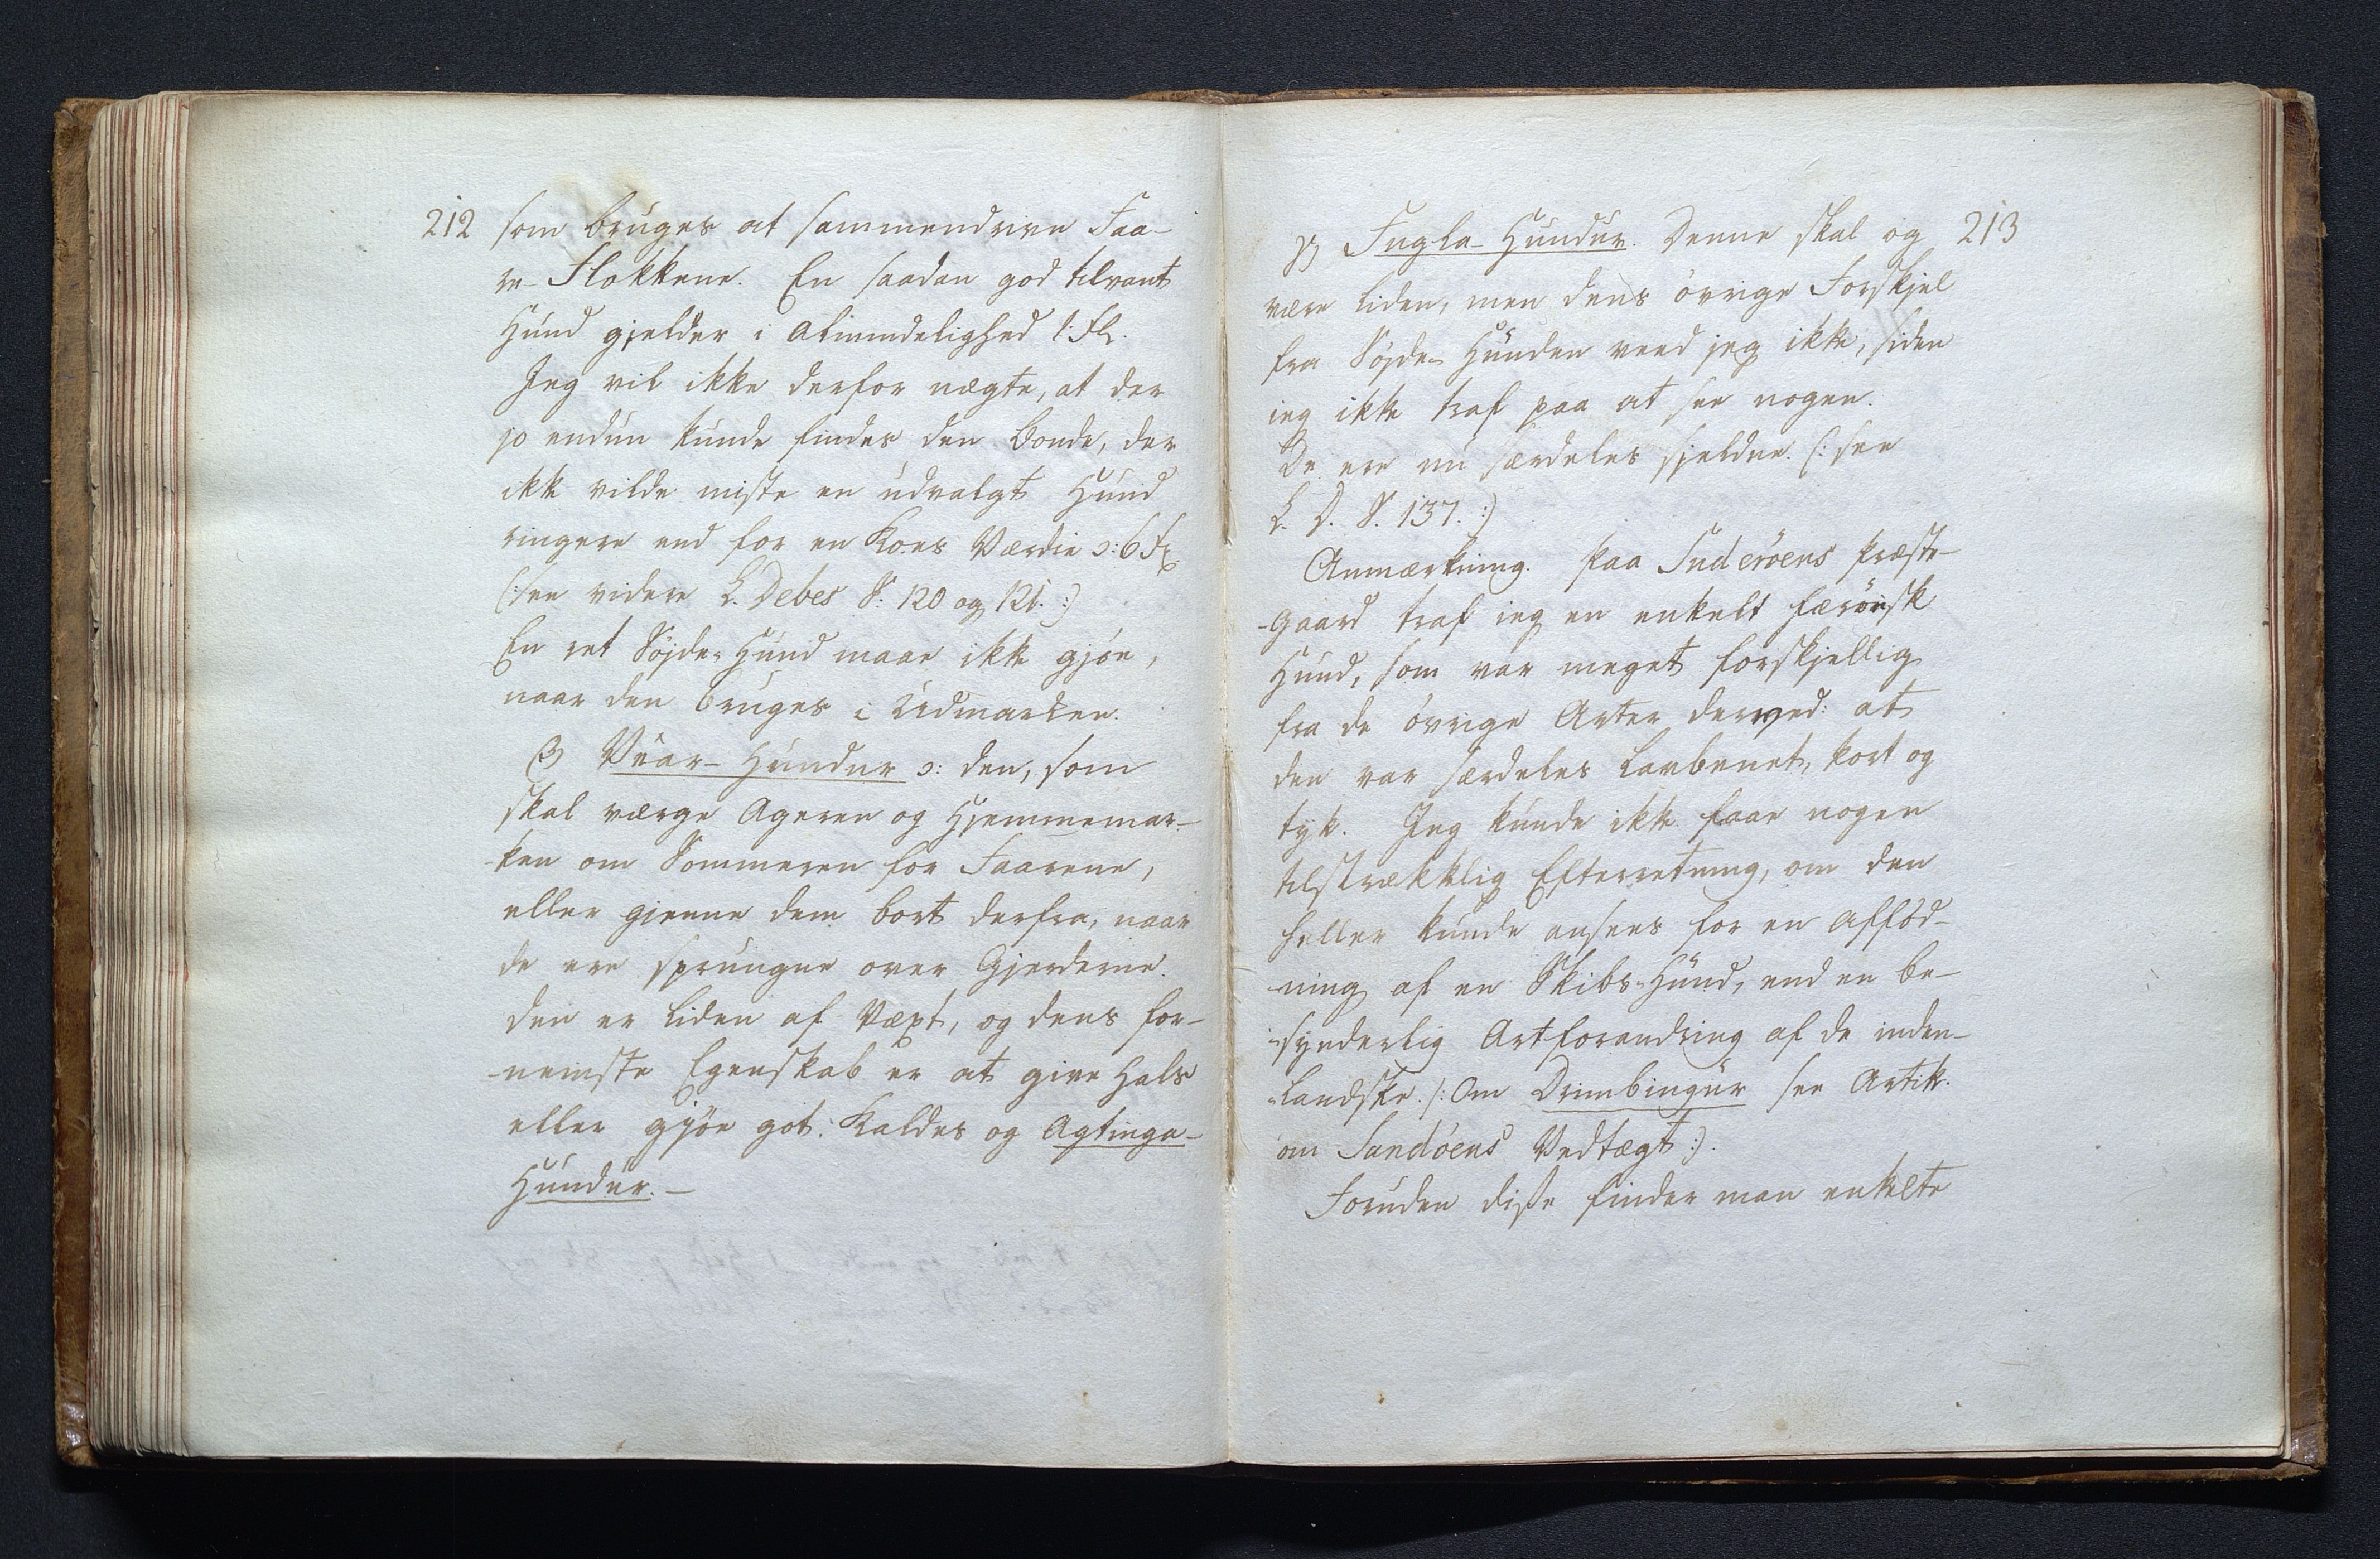 212
som bruges at sammendrive Faa-
re-Flokkene. En saadan god tilvant
Hund gjelder i Almindelighed 1: Fl.
Jeg vil ikke derfor nægte, at der
jo endun kunde findes den Bonde, der
ikk vilde miste en udvalgt Hund
ringere end for en Koes Værdie ɔ: 6
(: see videre L. Debes S: 120 og 121. :)
En ret Søjde-Hund maae ikke gjøe,
naar den bruges i Udmarken.
β) Vüar-Hundur ɔ: den, som
skal værge Ageren og Hjemmemar-
-ken om Sommeren for Faarene,
eller gienne dem bort derfra, naar
de ere sprungne over Gjerderne.
den er liden af Væxt, og dens for-
-nemste Egenskab er at give Hals
eller gjøe got: Kaldes og Agtinga-
Hundur. —
213
γ) Fugla-Hundur. Denne skal og
være liden, men dens øvrige Forskjel
fra Søjde-Hunden veed jeg ikke, siden
ieg ikke traf paa at see nogen.
De ere nu særdeles sjeldne. (: see
L. D. S. 137. :)
Anmærkning. Paa Suderöens Præste-
-gaard traf ieg en enkelt færøisk
Hund, som var meget forskjellig
fra de øvrige Arter derved: at
den var særdeles lavbenet, kort og
tyk. Jeg kunde ikke faae nogen
tilstrækkelig Efterretning, om den
heller kunde ansees for en Afföd-
-ning af en Skibs-Hund, end en be-
-synderlig Artforandring af de inden-
-landske. /: Om Drimbingur see Artik.
om Sandöens Vedtægt :).
Foruden disse finder man enkelte